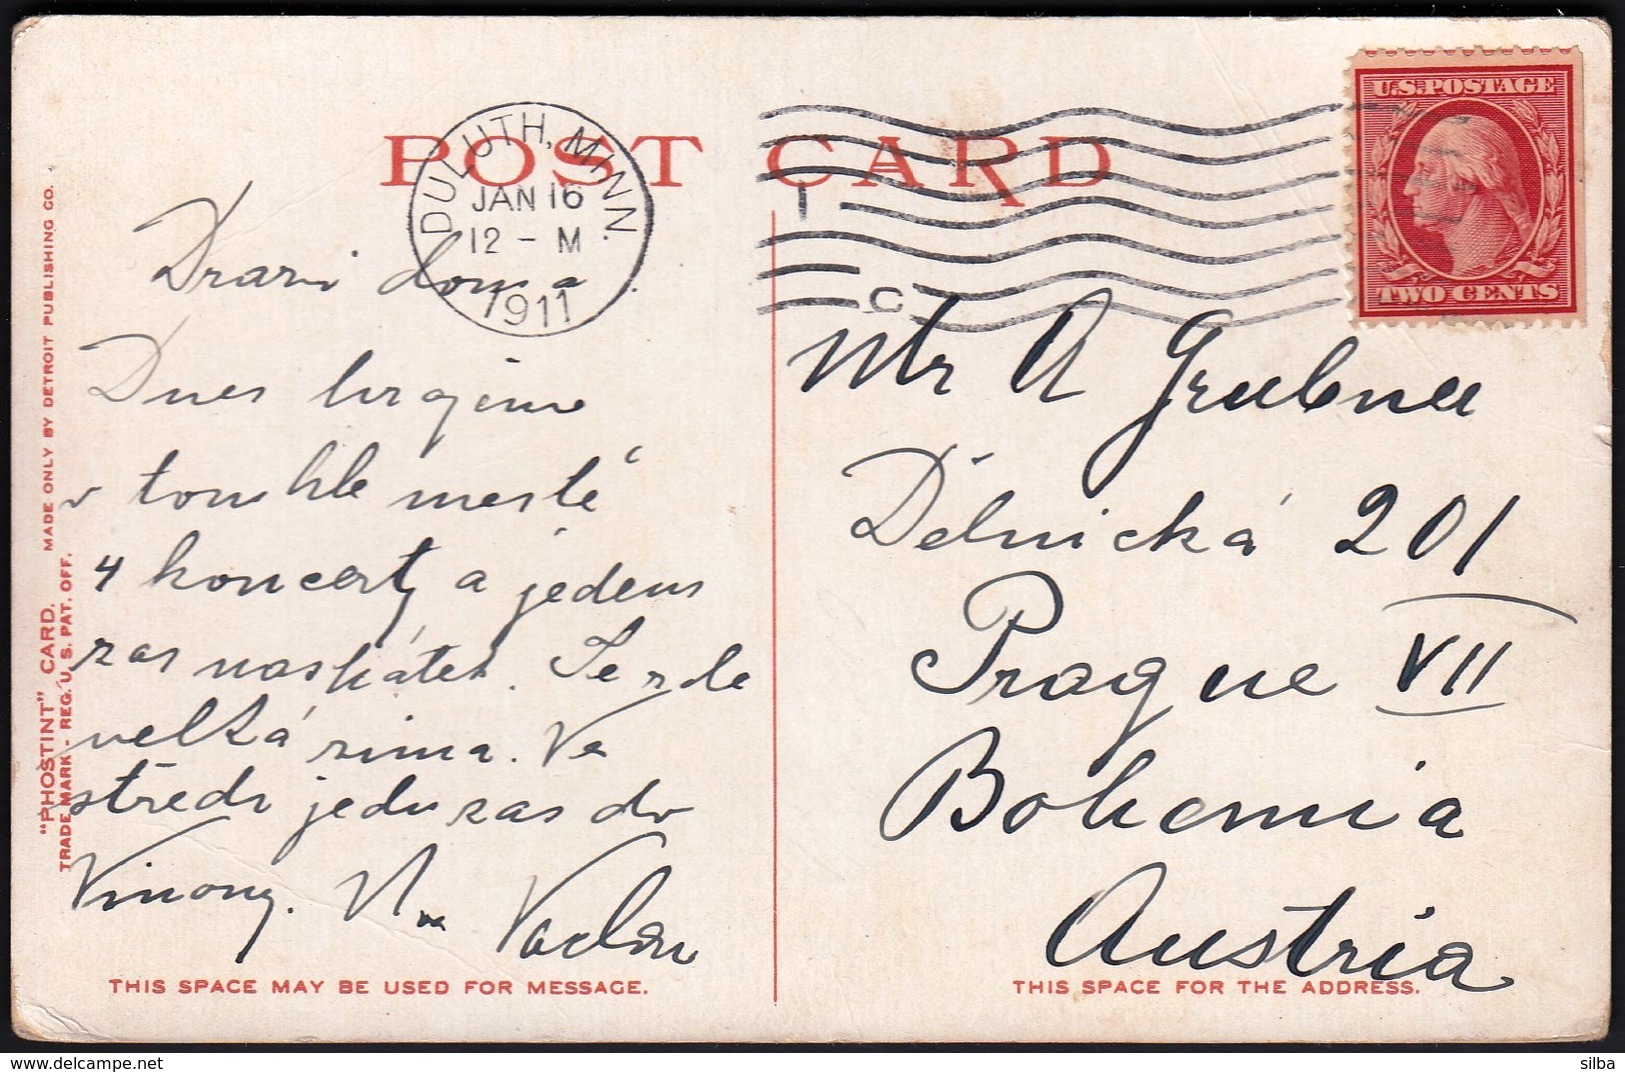 POST CARD
DULUTH, MINN.
JAN 16
12 - M
1911
1
C
U.S. POSTAGE
TWO CENTS
"PHOSTINT" CARD. MADE ONLY BY DETROIT PUBLISHING CO.
TRADE MARK - REG. U. S. PAT. OFF.
Drazí doma.
Dnes hrajeme
v tomhle městě
4 koncerty a jeden
zas nashátek. Je zde
velká zima. Ve
středu jedu zas do
Winony. Váš Václav
THIS SPACE MAY BE USED FOR MESSAGE.
Mr A Grubner
Dělnická 201
Prague VII
Bohemia
Austria
THIS SPACE FOR THE ADDRESS.
silba
delcampe.net